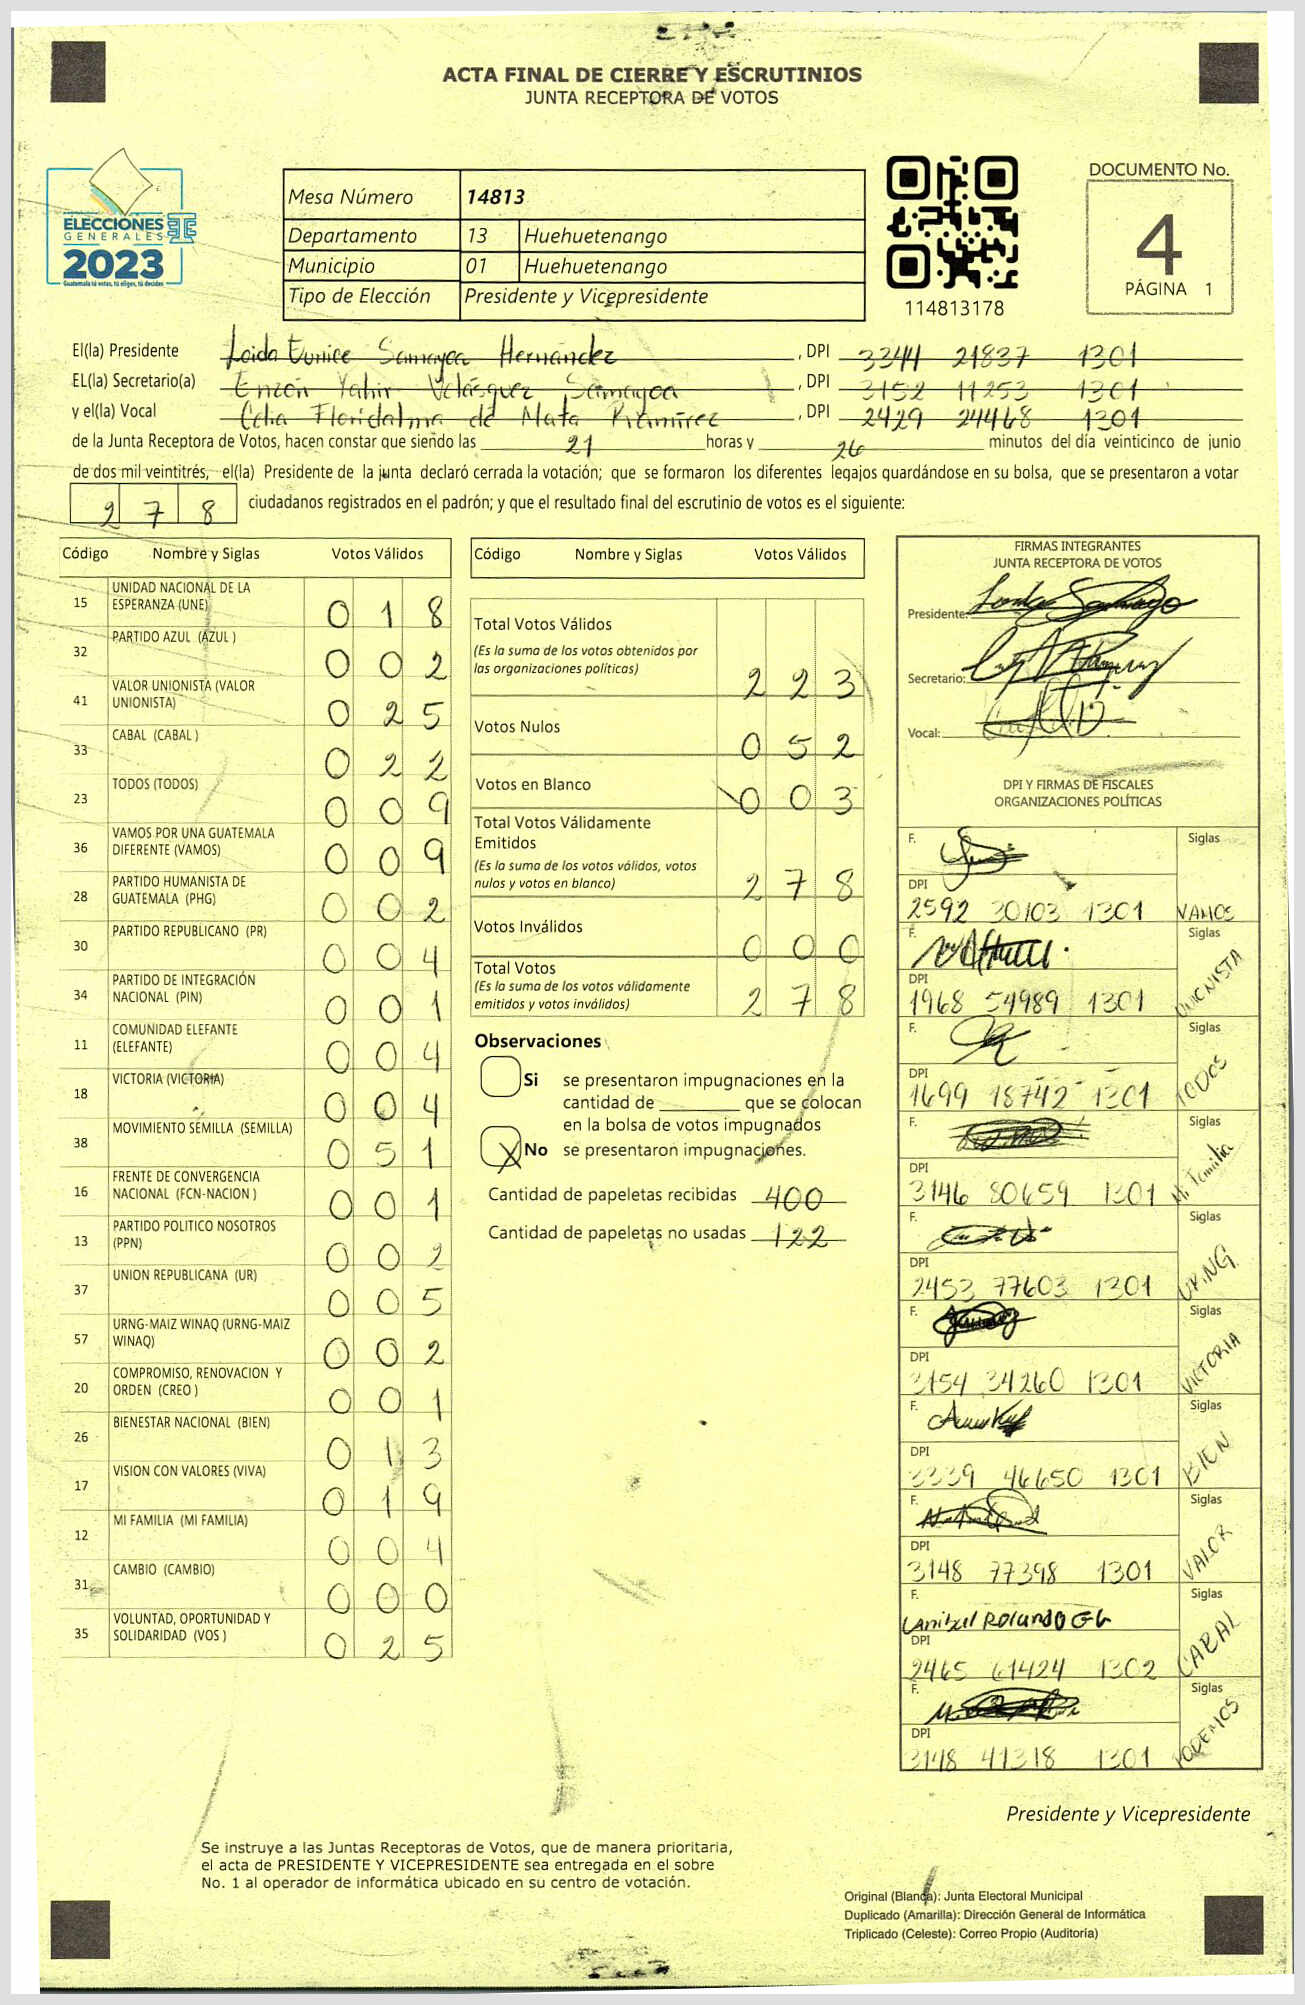 ACTA FINAL DE CIERRE Y ESCRUTINIOS
JUNTA RECEPTORA DE VOTOS
ELECCIONES
GENERALES
2023
Guatemala tú votas, tú eliges, tú decides
Mesa Número 14813
Departamento 13 Huehuetenango
Municipio 01 Huehuetenango
Tipo de Elección Presidente y Vicepresidente
114813178
DOCUMENTO No.
4
PÁGINA 1
El(la) Presidente Loida Eunice Samayoa Hernández, DPI 3344 21837 1301
EL(la) Secretario(a) Enzon Yahir Velásquez Samayoa, DPI 3152 11253 1301
y el(la) Vocal Celia Floridalma de Mata Ramírez, DPI 2429 24468 1301
de la Junta Receptora de Votos, hacen constar que siendo las 21 horas y 26 minutos del día veinticinco de junio
de dos mil veintitrés, el(la) Presidente de la junta declaró cerrada la votación; que se formaron los diferentes legajos guardándose en su bolsa, que se presentaron a votar
278 ciudadanos registrados en el padrón; y que el resultado final del escrutinio de votos es el siguiente:
Código Nombre y Siglas Votos Válidos
15 UNIDAD NACIONAL DE LA ESPERANZA (UNE) 018
32 PARTIDO AZUL (AZUL ) 002
41 VALOR UNIONISTA (VALOR UNIONISTA) 025
33 CABAL (CABAL ) 022
23 TODOS (TODOS) 009
36 VAMOS POR UNA GUATEMALA DIFERENTE (VAMOS) 009
28 PARTIDO HUMANISTA DE GUATEMALA (PHG) 002
30 PARTIDO REPUBLICANO (PR) 004
34 PARTIDO DE INTEGRACIÓN NACIONAL (PIN) 001
11 COMUNIDAD ELEFANTE (ELEFANTE) 004
18 VICTORIA (VICTORIA) 004
38 MOVIMIENTO SEMILLA (SEMILLA) 051
16 FRENTE DE CONVERGENCIA NACIONAL (FCN-NACION ) 001
13 PARTIDO POLITICO NOSOTROS (PPN) 002
37 UNION REPUBLICANA (UR) 005
57 URNG-MAIZ WINAQ (URNG-MAIZ WINAQ) 002
20 COMPROMISO, RENOVACION Y ORDEN (CREO ) 001
26 BIENESTAR NACIONAL (BIEN) 013
17 VISION CON VALORES (VIVA) 019
12 MI FAMILIA (MI FAMILIA) 004
31 CAMBIO (CAMBIO) 000
35 VOLUNTAD, OPORTUNIDAD Y SOLIDARIDAD (VOS ) 025
Código Nombre y Siglas Votos Válidos
Total Votos Válidos
(Es la suma de los votos obtenidos por
las organizaciones políticas) 223
Votos Nulos 052
Votos en Blanco 003
Total Votos Válidamente
Emitidos
(Es la suma de los votos válidos, votos
nulos y votos en blanco) 278
Votos Inválidos 000
Total Votos
(Es la suma de los votos válidamente
emitidos y votos inválidos) 278
Observaciones
Si se presentaron impugnaciones en la
cantidad de ________ que se colocan
en la bolsa de votos impugnados
X No se presentaron impugnaciones.
Cantidad de papeletas recibidas 400
Cantidad de papeletas no usadas 122
FIRMAS INTEGRANTES
JUNTA RECEPTORA DE VOTOS
Presidente:
Secretario:
Vocal:
DPI Y FIRMAS DE FISCALES
ORGANIZACIONES POLÍTICAS
F. Siglas
DPI
2592 30103 1301 VAMOS
F. Siglas
DPI
1968 54989 1301 UNIONISTA
F. Siglas
DPI
1699 18742 1301 TODOS
F. Siglas
DPI
3146 80659 1301 Mi Familia
F. Siglas
DPI
2453 77603 1301 URNG
F. Siglas
DPI
3154 34260 1301 VICTORIA
F. Siglas
DPI
3339 46650 1301 BIEN
F. Siglas
DPI
3148 77398 1301 VALOR
F. Siglas
DPI
2465 61424 1302 CABAL
F. Siglas
DPI
3148 41318 1301 PODEMOS
Presidente y Vicepresidente
Se instruye a las Juntas Receptoras de Votos, que de manera prioritaria,
el acta de PRESIDENTE Y VICEPRESIDENTE sea entregada en el sobre
No. 1 al operador de informática ubicado en su centro de votación.
Original (Blanca): Junta Electoral Municipal
Duplicado (Amarilla): Dirección General de Informática
Triplicado (Celeste): Correo Propio (Auditoría)